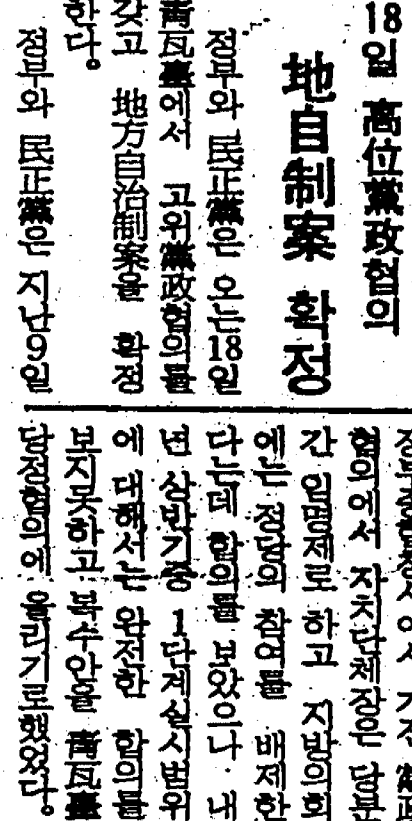 18일 高位黨政협의
地自制案 확정
정부와 民正黨은 오는18일
靑瓦臺에서 고위黨政협의를
갖고 地方自治制案을 확정
한다。
정부와 民正黨은 지난9일
협의에서 자치단체장은 당분
간 임명제로 하고 지방의회
에는 정당의 참여를 배제한
다는데 합의를 보았으나 내
년 상반기중 1단계실시범위
에 대해서는 완전한 합의를
보지못하고 복수안을 靑瓦臺
당정협의에 올리기로했었다。